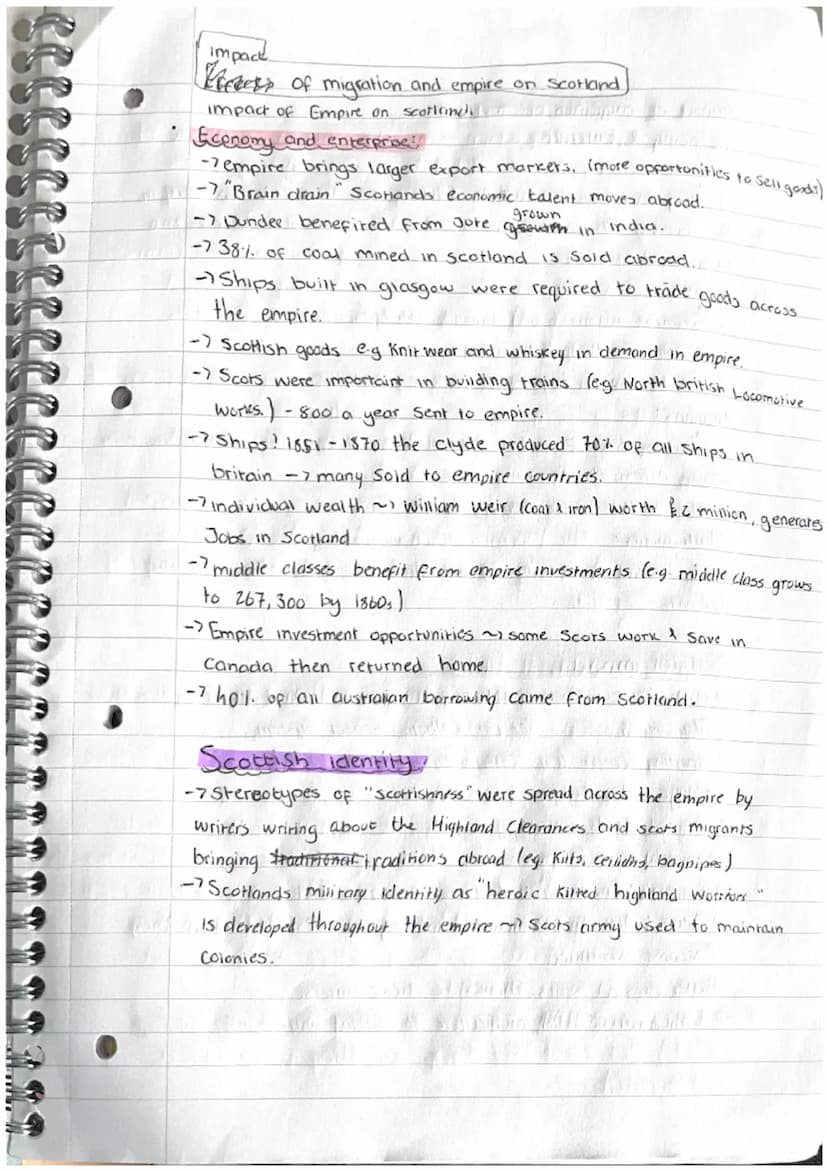 impact
Effects of migration and empire on Scotland
impact of Empire on scotland.
Economy and enterprise:
-> empire brings larger export markers. (more opportunities to sell goods)
-> "Brain drain" Scotlands economic talent moves abroad.
-> Dundee benefired from Jute grown growth in India.
-> 38% of coal mined in scotland is sold abroad.
-> Ships built in glasgow were required to trade goods across
the empire.
-> Scottish goods e.g Knitwear and whiskey in demand in empire.
-> Scots were importaint in building trains (e.g. North british Locomotive
works.) - 800 a year sent to empire.
-> Ships! 1851 - 1870 the clyde produced 70% of all ships in
britain -> many sold to empire countries.
-> individual wealth ~> william weir (coal & iron) worth £2 million, generates
Jobs in Scotland
-> middle classes benefit from empire investments (e.g. middle class grows
to 267,300 by 1860s)
-> Empire investment opportunities ~> some Scots work & save in
Canada then returned home
-> 40% of all australian borrowing came from Scotland.
Scottish identity
-> Stereotypes of "scottishness" were spread across the empire by
writers writing about the Highland Clearances and scots migrants
bringing traditional traditions abroad (eg. Kilts, ceilidhs, bagpipes)
-> Scotlands military identity as "heroic kilted highland worriors"
is developed throughout the empire ~> Scots army used to maintain
colonies.